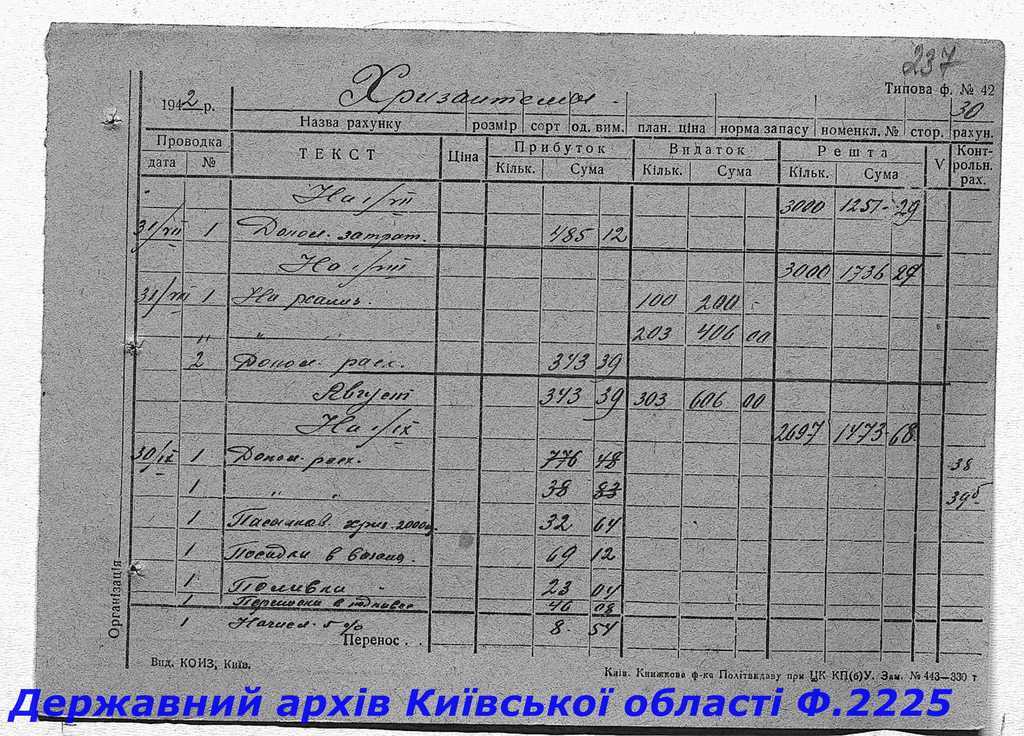 237
Типова ф. № 42
1942 р. Хризантема 30
Назва рахунку розмір сорт од. вим. план. ціна норма запасу номенкл. № стор. рахун.
Проводка ТЕКСТ Ціна Прибуток Видаток Решта V Конт-рольн. рах.
дата № Кільк. Сума Кільк. Сума Кільк. Сума
На 1/VII 3000 1251-29
31/VII 1 Допом. затрат. 485 12
На 1/VIII 3000 1736 29
31/VIII 1 На реализ. 100 200 -
" " 203 406 00
2 Допом. расх. 343 39
Август 343 39 303 606 00
На 1/IX 2697 1473-68
30/IX 1 Допом. расх. 776 48 38
1 " " 38 83 39б
1 хриз. 2000 32 64
1 Посадки в 69 12
1 Поливка " 23 04
1 в 46 08
1 Начисл. 5% 8. 54
Перенос.
Організація
Вид. КОИЗ, Київ.
Київ. Книжкова ф-ка Політвидаву при ЦК КП(б)У. Зам. № 443—330 т
Державний архів Київської області Ф.2225